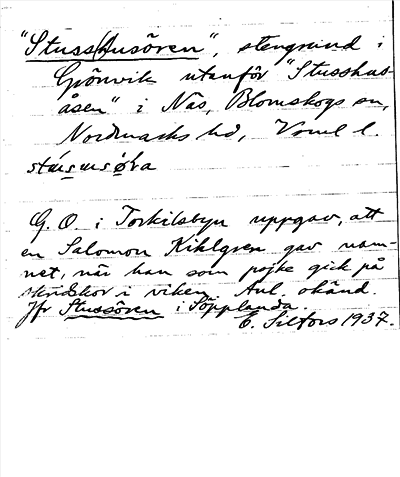 "Stuss(h)usören", stengrund i
Grönvik utanför "Stusshus-
åsen" i Näs, Blomskogs sn,
Nordmarks hd, Värml. l.
G. O. i Torkilsbyn uppgav, att
en Salomon Kihlgren gav nam-
net, när han som pojke gick på
skridskor i viken. Anl. okänd.
Jfr Stussören i Söpplanda.
E. Silfors 1937.